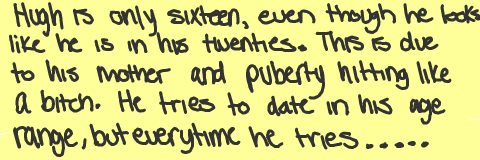 Hugh is only sixteen, even though he looks
like he is in his twenties. This is due
to his mother and puberty hitting like
a bitch. He tries to date in his age
range, but everytime he tries.....